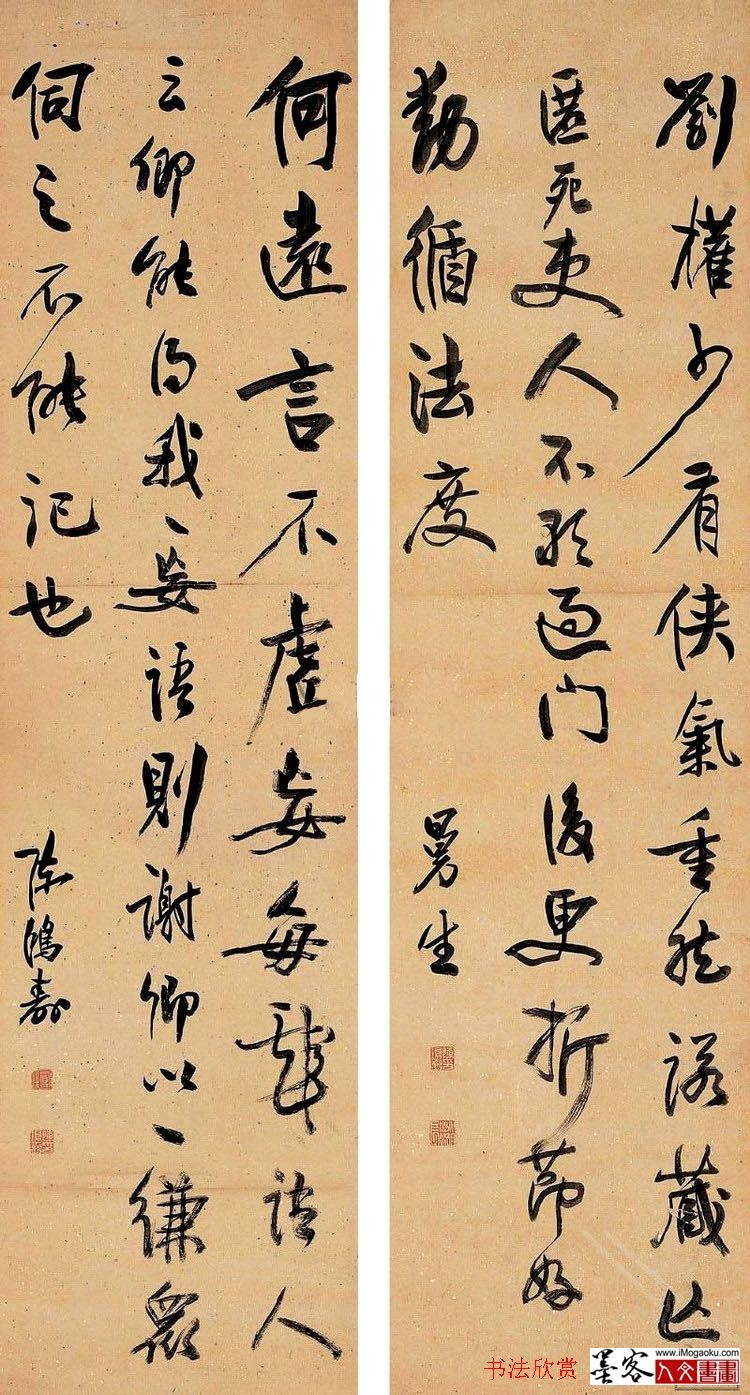 劉權少有俠氣重然諾藏亡
匿死吏人不敢過門後更折節好
勤循法度
曼生
何遠言不虛妄每戲語人
云卿能得我一妄語則謝卿以一縑眾
伺之不能記也
陳鴻壽
书法欣赏
墨客
www.iMogaoku.com
人文書畫